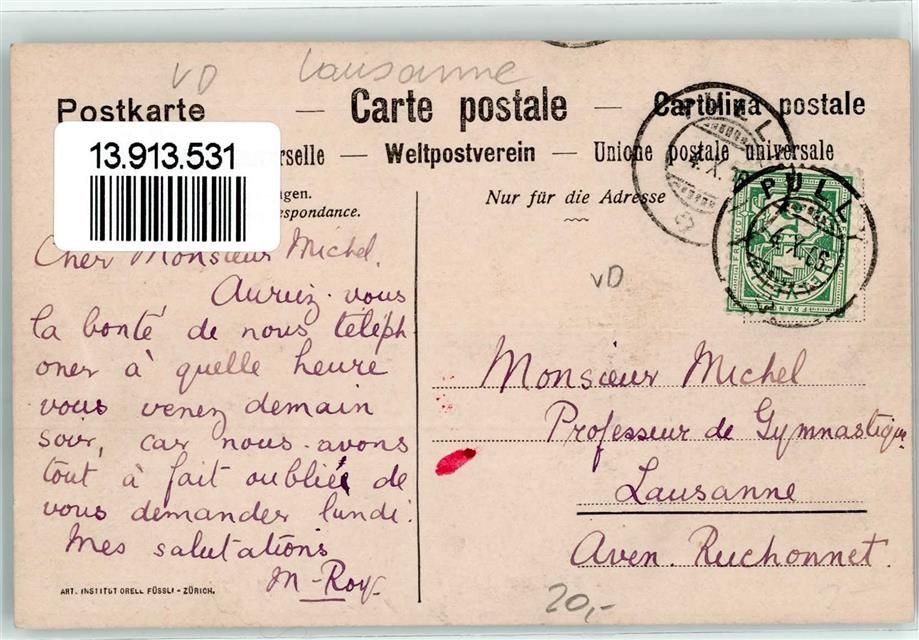 VD Lausanne
Postkarte — Carte postale — Cartolina postale
13.913.531
erselle — Weltpostverein — Unione postale universale
ngen.
espondance.
Nur für die Adresse
PULLY
4.X.06
HELVETIA
FRANCO
VD
Cher Monsieur Michel.
Auriez-vous
la bonté de nous téléph
oner à quelle heure
vous venez demain
soir, car nous avons
tout à fait oublié de
vous demander lundi.
Mes salutations
M-Roy.
Monsieur Michel
Professeur de Gymnastique
Lausanne
Aven. Ruchonnet.
ART. INSTITUT ORELL FÜSSLI - ZÜRICH.
20,-